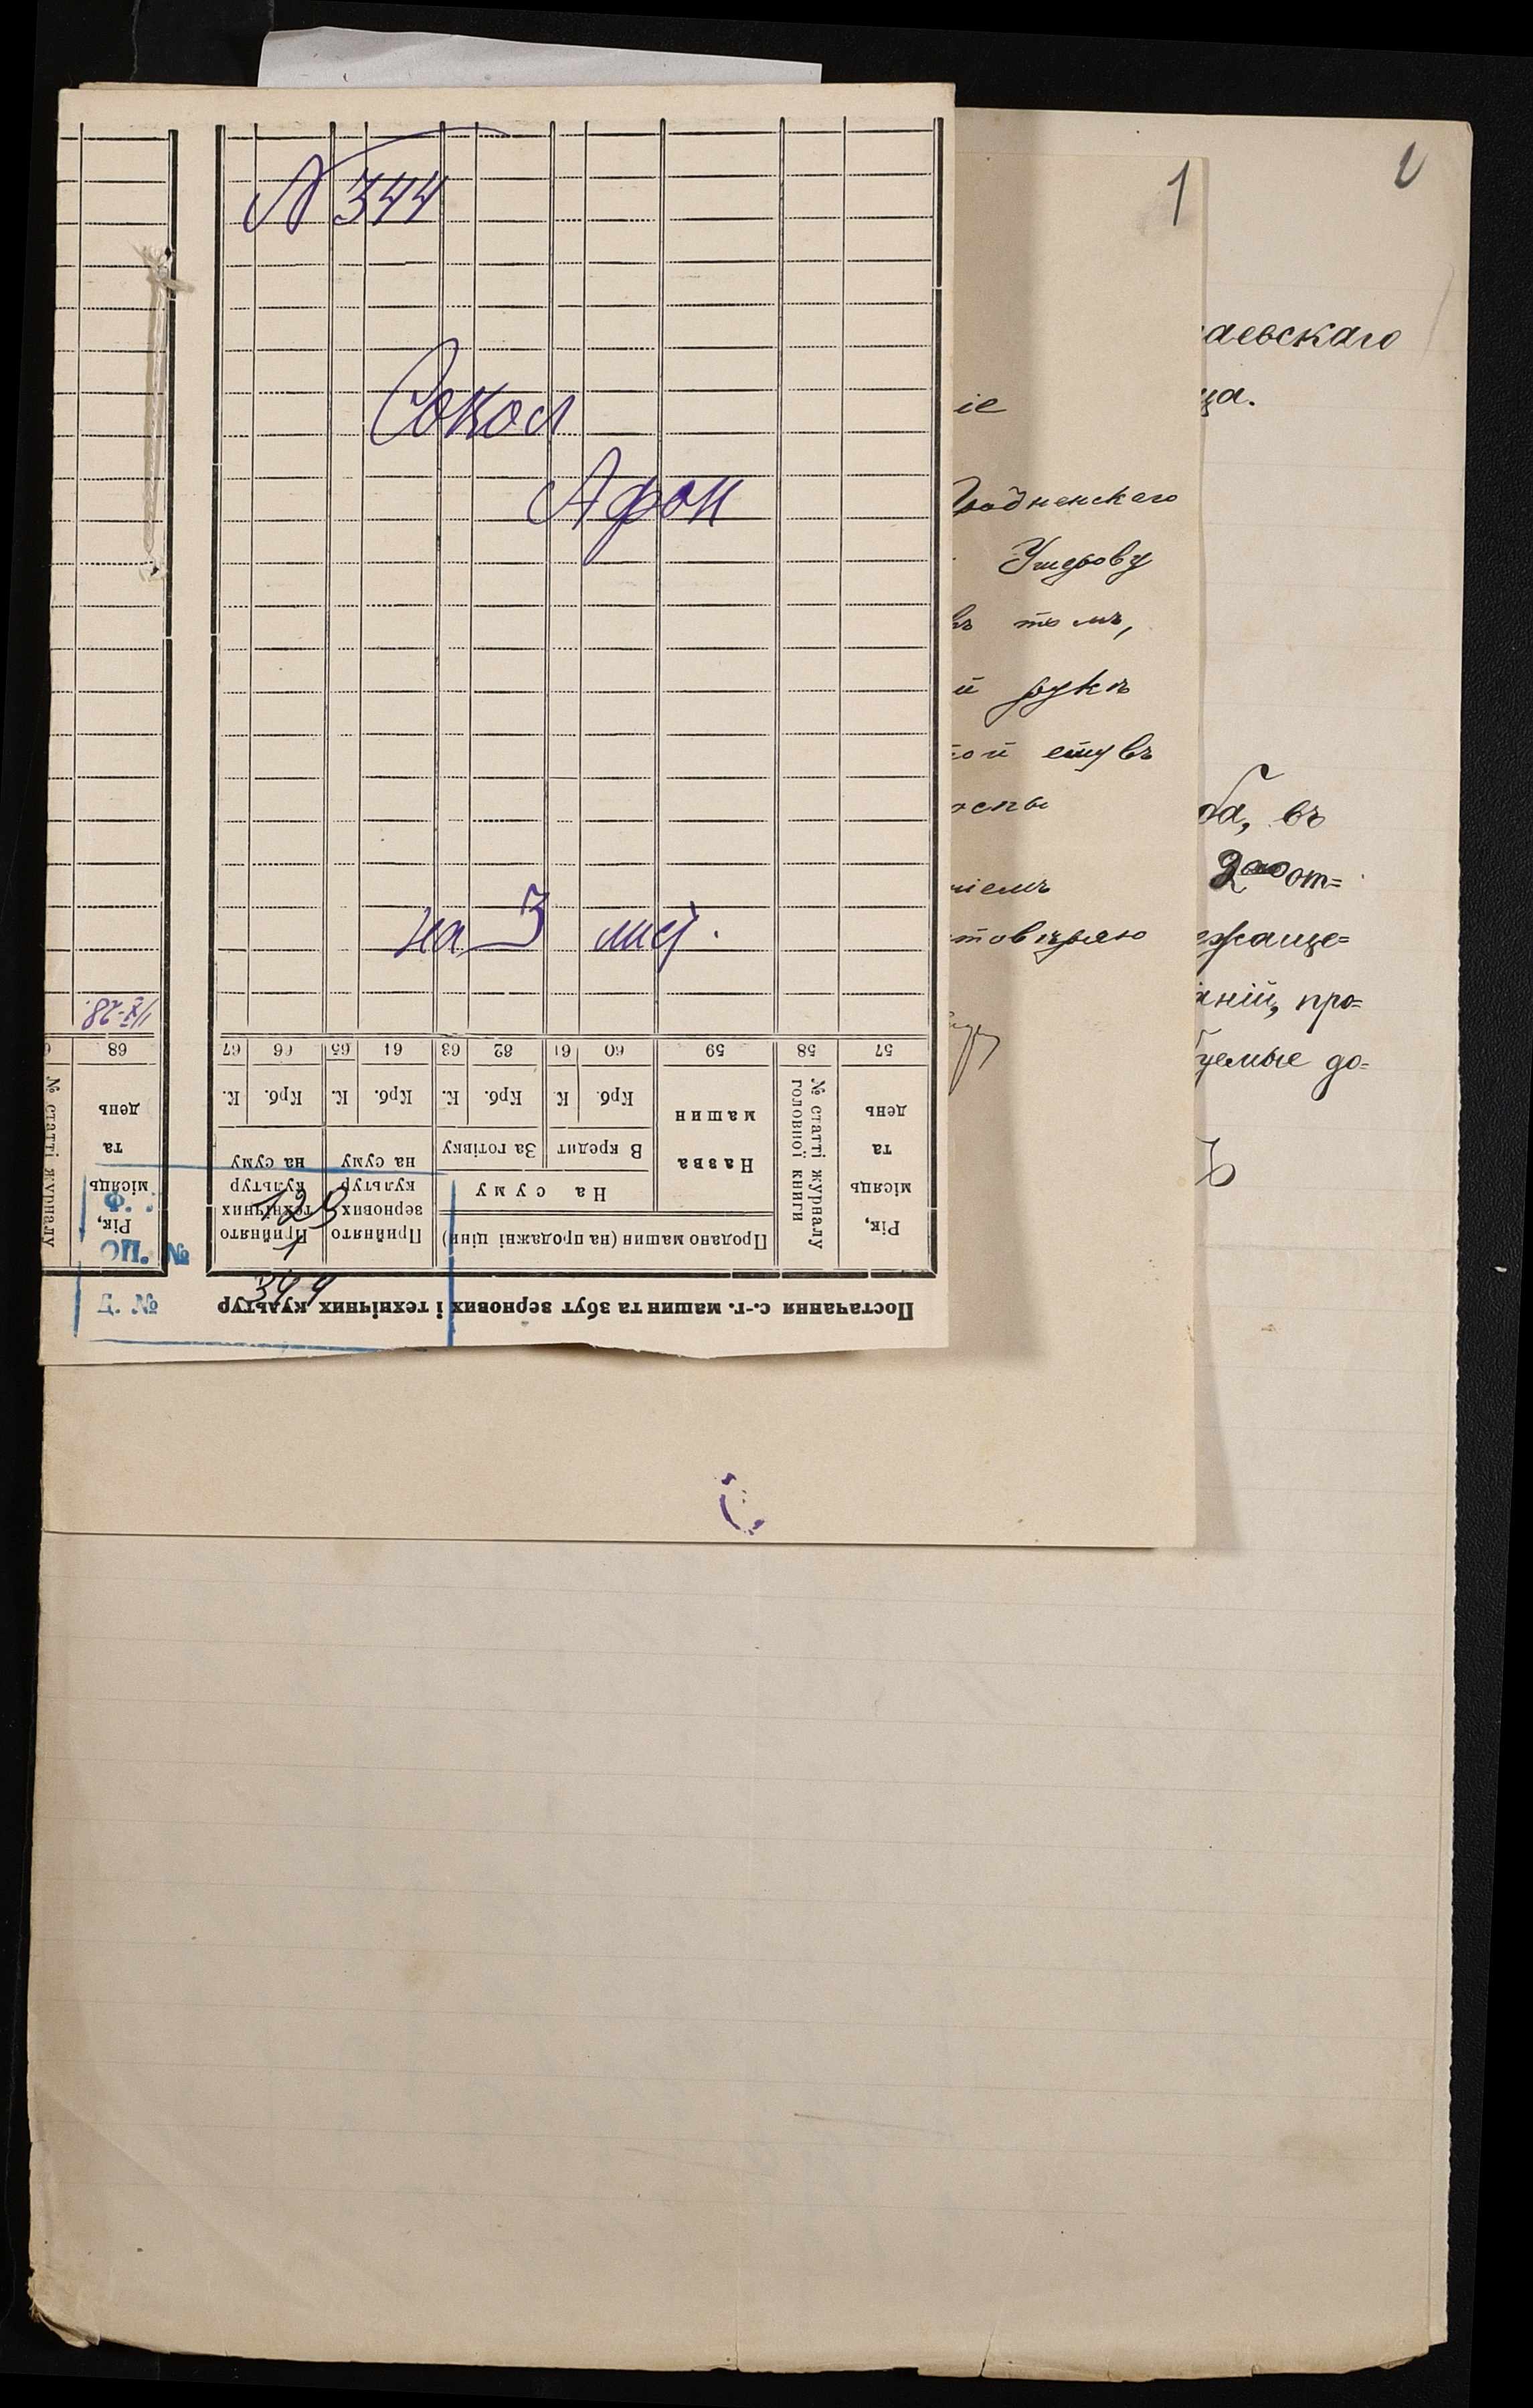 № 344
Сокол
Афон
на 3 лис.
1
іе
Гродненскаго
Умерову
въ томъ,
й рукъ
ой ему въ
оспы
ніемъ
товѣряю
2
аевскаго
ца.
ба, въ
2го от=
ежаще=
аній, про=
уемые до=
ъ
Постачання с.-г. машин та збут зернових і технічних культур
Рік, місяць та день
№ статті журналу головної книги
Продано машин (на продажні ціни)
Назва машин
На суму
В кредит
За готівку
Крб. К. Крб. К.
Прийнято зернових культур на суму
Крб. К.
Прийнято технічних культур на суму
Крб. К.
57 58 59 60 61 62 63 64 65 66 67
Рік, місяць та день
№ статті журналу
68
129
1
344